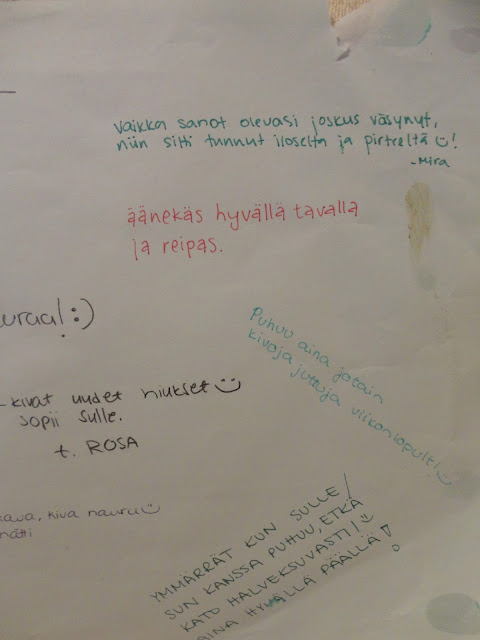 Vaikka sanot olevasi joskus väsynyt,
niin silti tunnut iloselta ja pirteeltä :)!
-Mira
äänekäs hyvällä tavalla
ja reipas.
uraa! :)
Puhuu aina jotain
kivoja juttuja viikonlopult! :)
- kivat uudet hiukset :)
sopii sulle.
t. ROSA
kiva nauru :)
YMMÄRRÄT KUN SULLE/
SUN KANSSA PUHUU, ETKÄ
KATO HALVEKSUVASTI! :)
AINA HYVÄLLÄ PÄÄLLÄ!